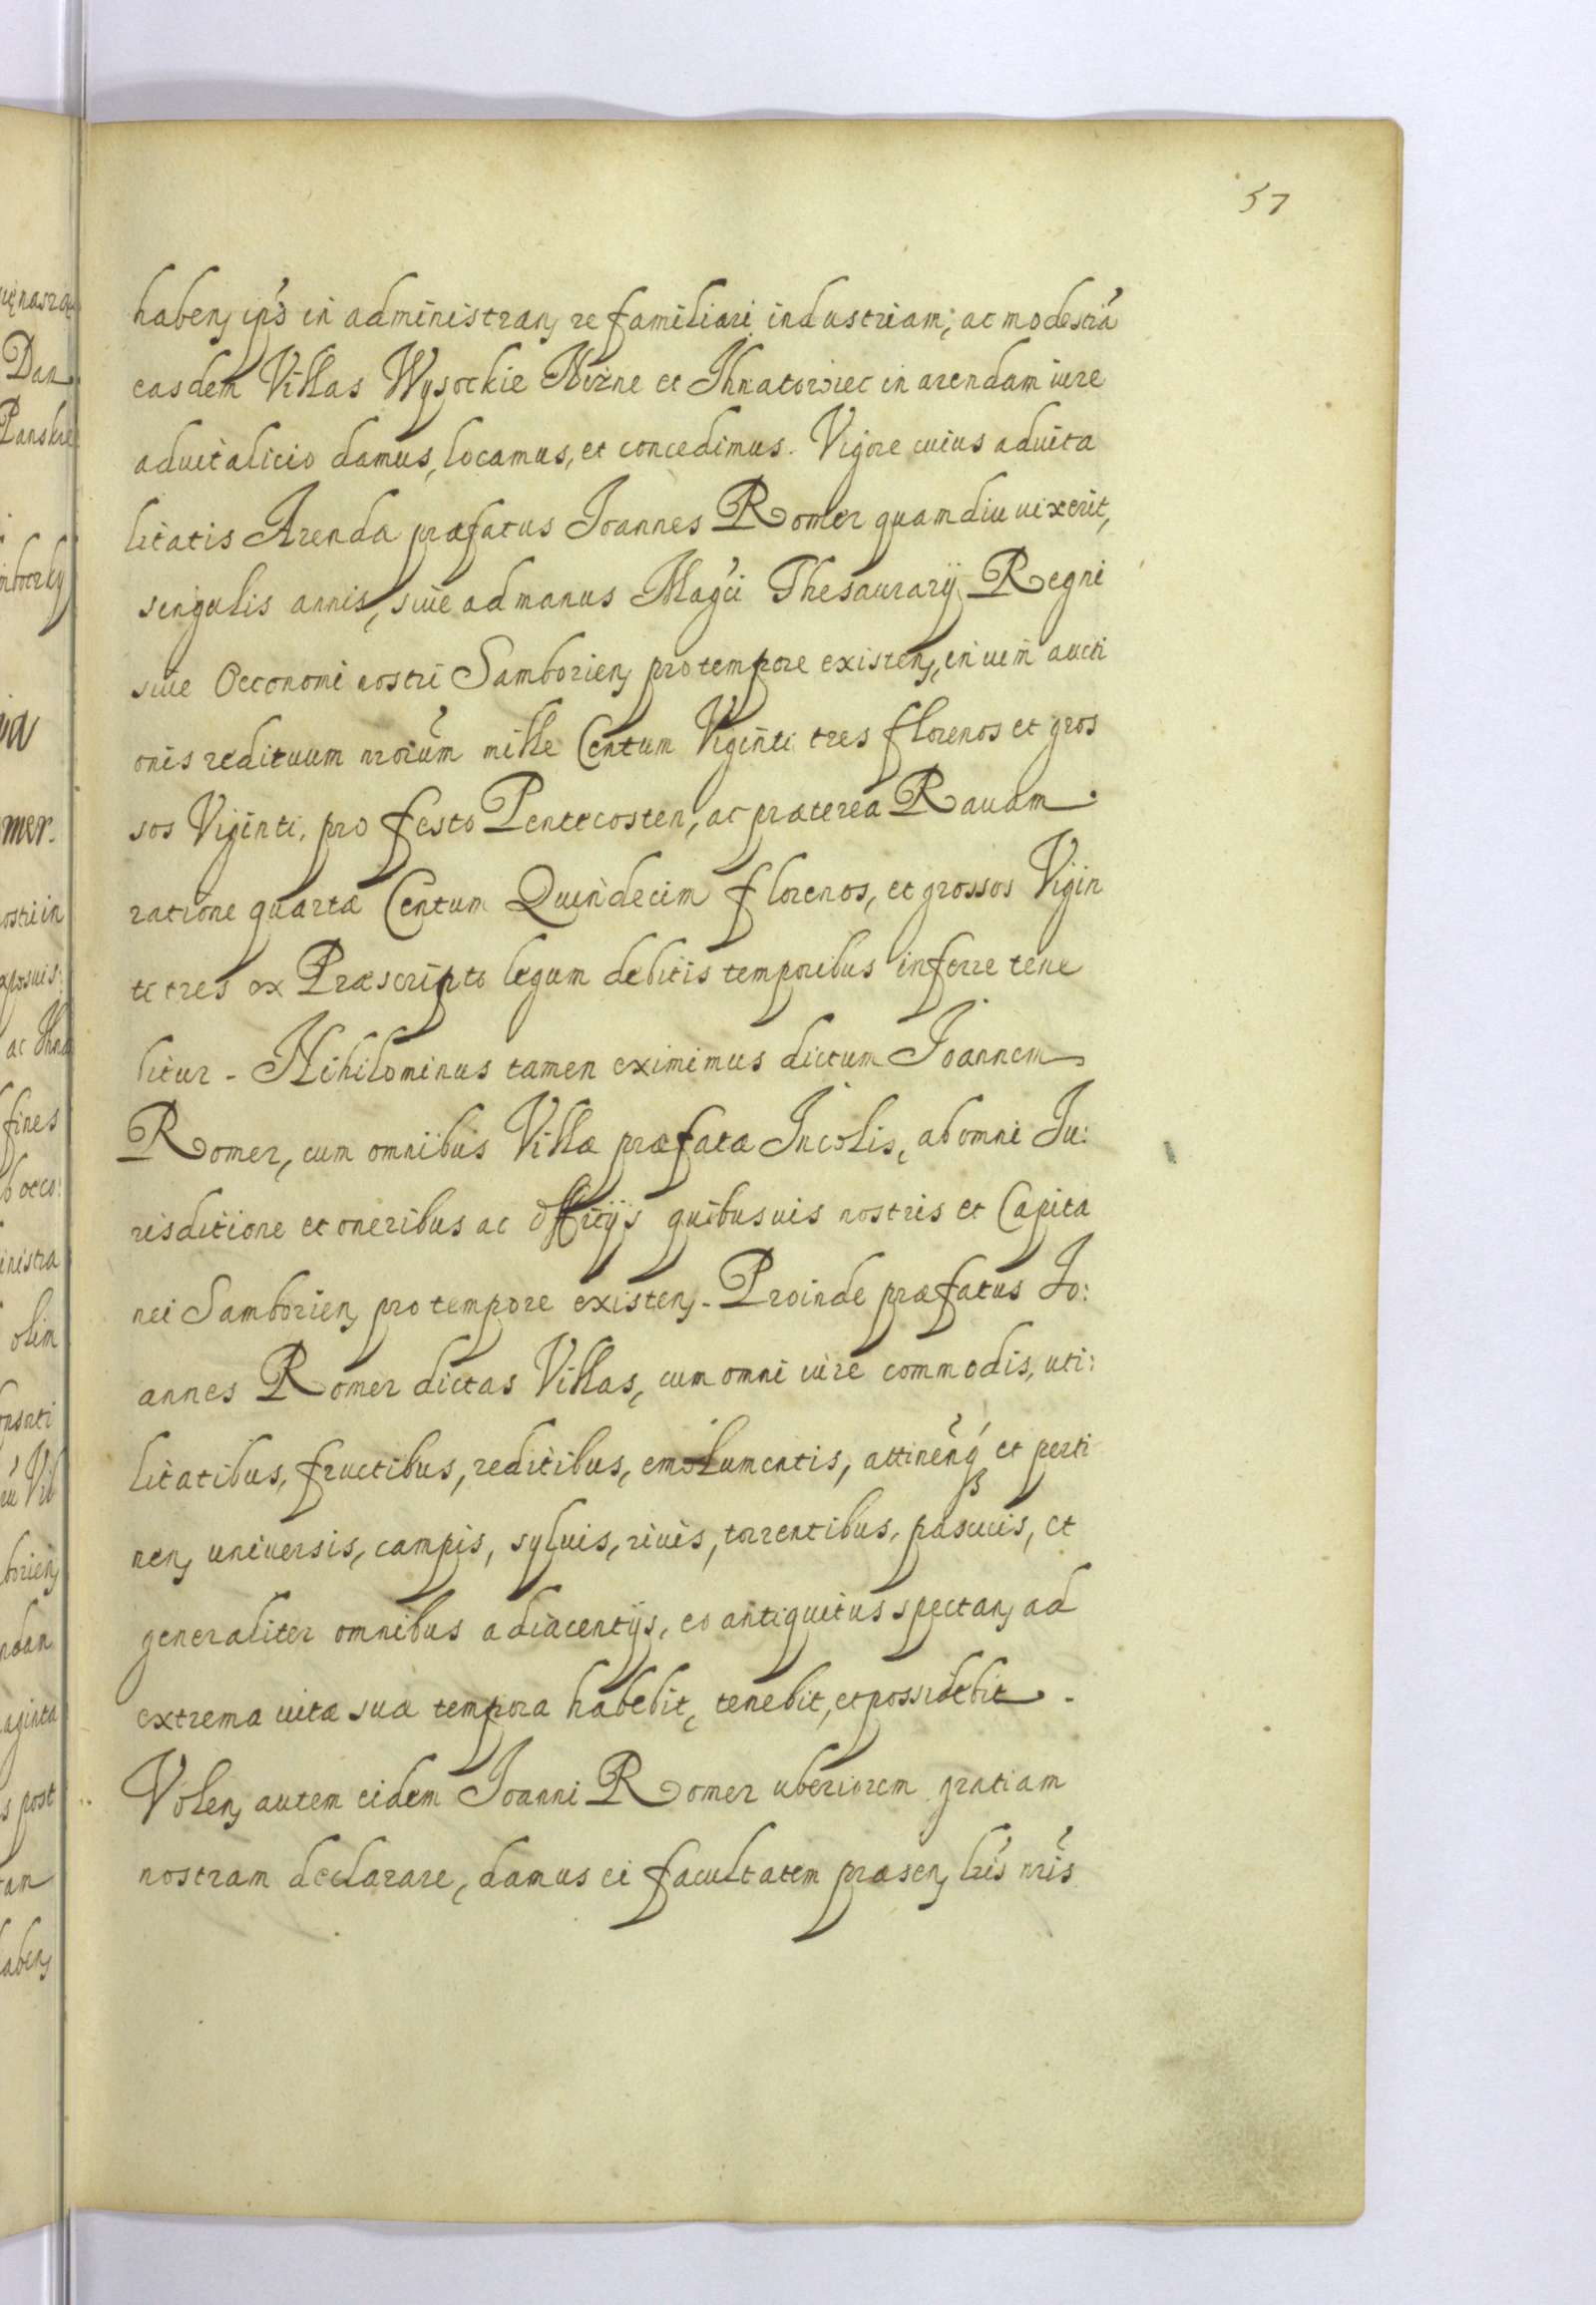 57
haben, ip̃s in administran, re familiari industriam, ac modestiã
easdem Villas Wysockie Niżne et Ihnatowiec in arendam iure
aduitalicio damus, locamus, et concedimus. Vigore cuius aduita
litatis Arenda præfatus Ioannes Romer quamdiu uixerit,
singulis annis, siue ad manus Mag̃ci Thesaurarij Regni
siue Oeconomi nostri Samborien, pro tempore existen, in uim aucti
onis redituum nrorũm mille Centum Viginti tres florenos et gros
sos Viginti, pro festo Pentecosten, ac præterea Rauam
ratione quartæ Centum Quindecim florenos, et grossos Vigin
ti tres ex Præscripto legum debitis temporibus inferre tene
bitur - Nihilominus tamen eximimus dictum Ioannem
Romer, cum omnibus Villæ præfatæ Incolis, ab omni Iu:
risditione et oneribus ac officijs quibusuis nostris et Capita
nei Samborien, pro tempore existen,. Proinde præfatus Io:
annes Romer dictas Villas, cum omni iure commodis, uti:
litatibus, fructibus, reditibus, emolumentis, attinen̄q́ et perti
nen, uniuersis, campis, syluis, riuis, torrentibus, pascuis, et
generaliter omnibus adiacentijs, eo antiquitus spectan, ad
extrema uitæ suæ tempora habebit, tenebit, et possidebit.
Volen, autem eidem Ioanni Romer uberiorem gratiam
nostram declarare, damus ei facultatem præsen, lr̃is nr̃is